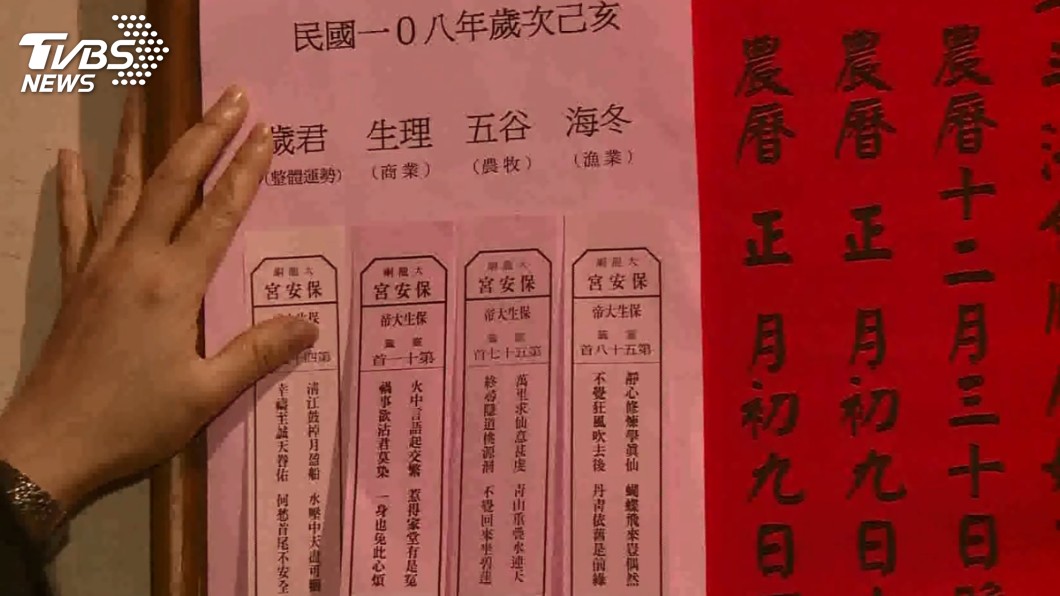 TVBS
NEWS
民國一0八年歲次己亥
歲君
(整體運勢)
生理
(商業)
五谷
(農牧)
海冬
(漁業)
大龍峒
保安宮
第四
清江鼓棹月盈船
幸禱至誠天眷佑
何愁首尾不安全
大龍峒
保安宮
保生大帝
靈籤
第十一首
火中言語起交繁
惹得家堂有是冤
禍事欲沾君莫染
一身也免此心煩
大龍峒
保安宮
保生大帝
靈籤
第五十七首
萬里求仙意甚虔
青山重疊水連天
終尋隱道桃源洞
不覺回來坐碧蓮
大龍峒
保安宮
保生大帝
靈籤
第五十八首
靜心修煉學真仙
蝴蝶飛來豈偶然
不覺狂風吹去後
丹青依舊是前緣
農曆十二月三十日
農曆正月初九日
農曆正月初九日